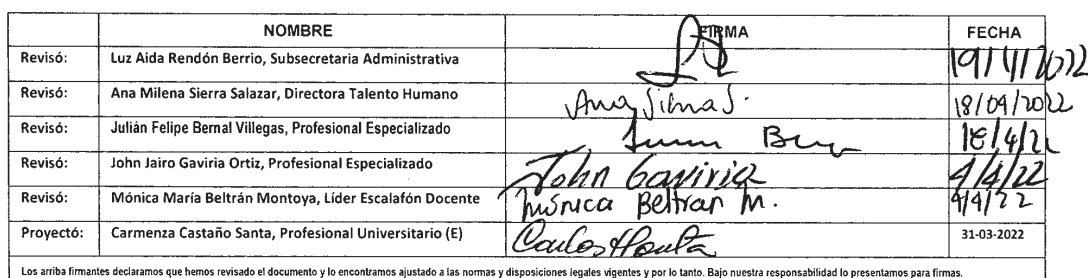 NOMBRE FIRMA FECHA
Revisó: Luz Aida Rendón Berrio, Subsecretaria Administrativa 19/4/2022
Revisó: Ana Milena Sierra Salazar, Directora Talento Humano Ana Sierra S. 18/04/2022
Revisó: Julián Felipe Bernal Villegas, Profesional Especializado 18/4/22
Revisó: John Jairo Gaviria Ortiz, Profesional Especializado John Gaviria 4/4/22
Revisó: Mónica María Beltrán Montoya, Líder Escalafón Docente Mónica Beltran M. 4/4/22
Proyectó: Carmenza Castaño Santa, Profesional Universitario (E) 31-03-2022
Los arriba firmantes declaramos que hemos revisado el documento y lo encontramos ajustado a las normas y disposiciones legales vigentes y por lo tanto. Bajo nuestra responsabilidad lo presentamos para firmas.